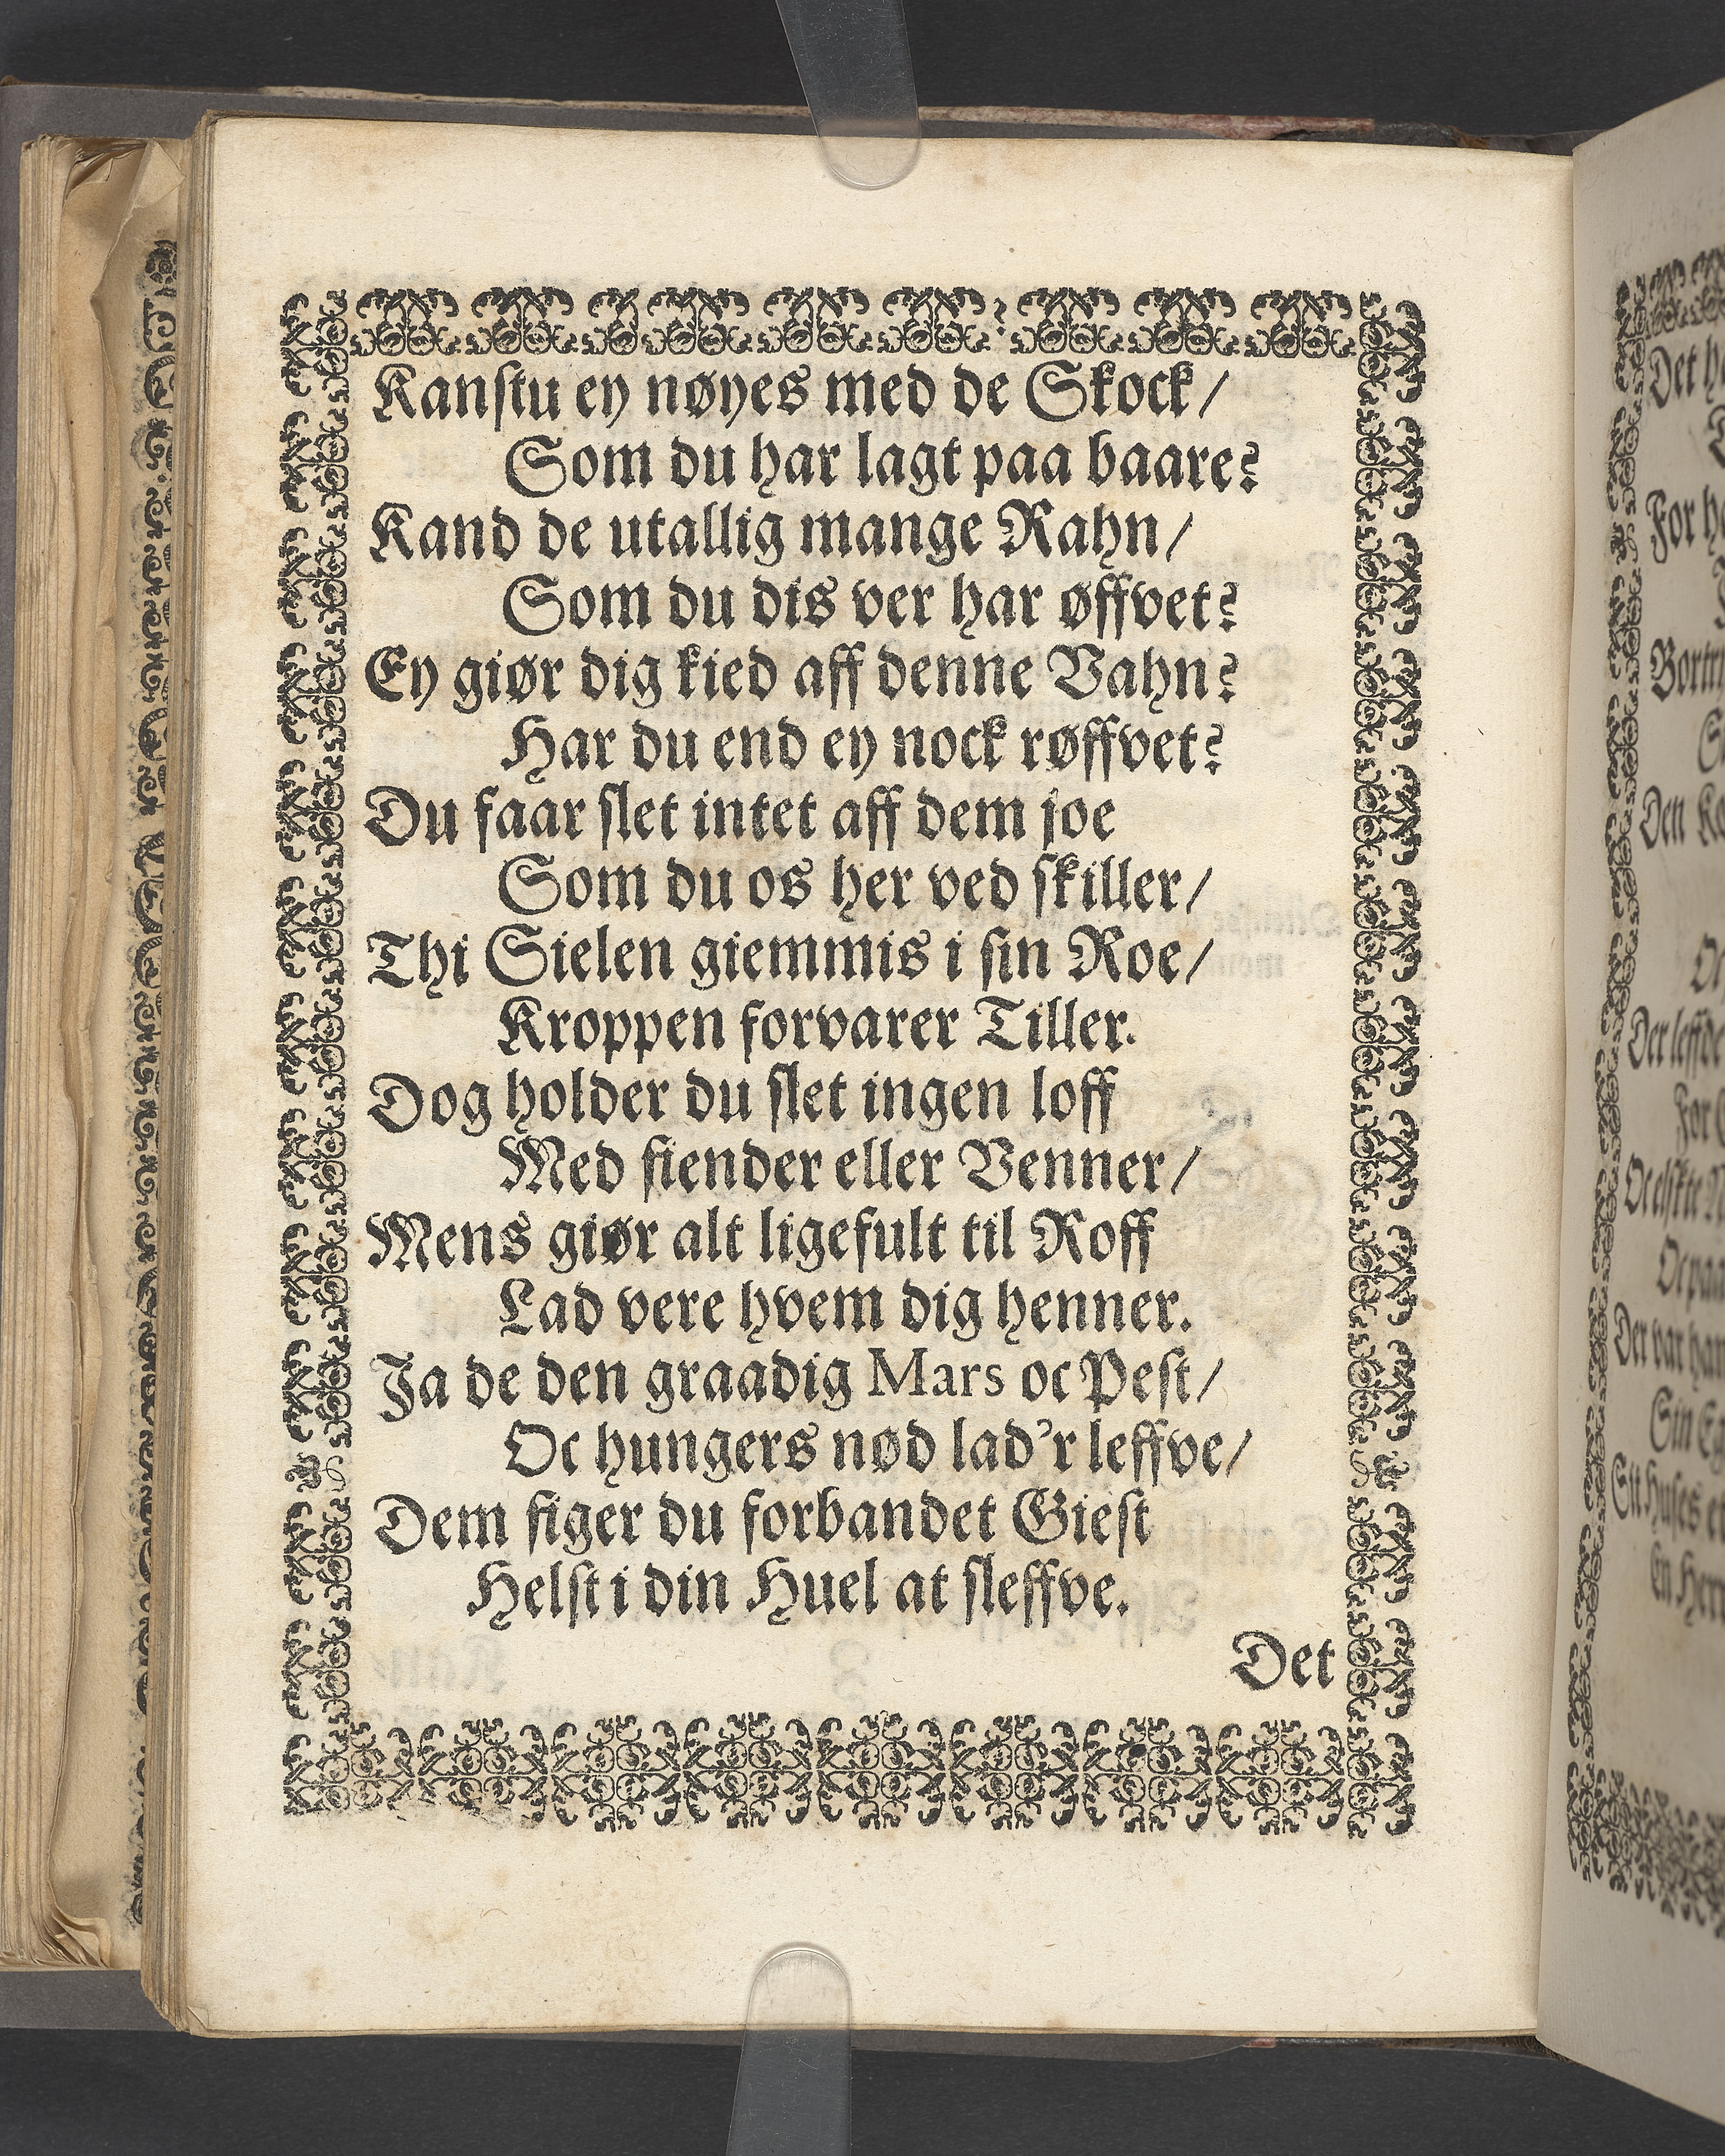 Kanstu ey nøyes med de Skock/
Som du har lagt paa baare?
Kand de utallig mange Rahn/
Som du dis ver har øffvet?
Ey giør dig kied aff denne Vahn?
Har du end ey nock røffvet?
Du faar slet intet aff dem joe
Som du os her ved skiller/
Thi Sielen giemmis i sin Roe/
Kroppen forvarer Tiller.
Dog holder du slet ingen loff
Med fiender eller Venner/
Mens giør alt ligefult til Roff
Lad vere hvem dig henner.
Ja de den graadig Mars oc Pest/
Oc hungers nød lad'r leffve/
Dem figer du forbandet Giest
Helst i din Huel at sleffve.
Det